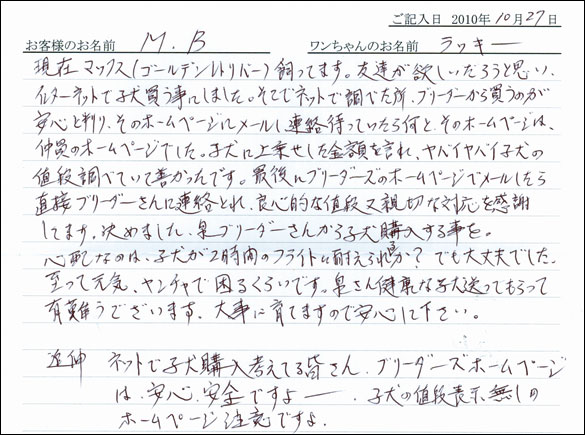 ご記入日 2010年10月27日
お客様のお名前 M.B ワンちゃんのお名前 ラッキー
現在マックス(ゴールデンレトリバー)飼ってます。友達が欲しいだろうと思い、
インターネットで子犬買う事にしました。そこでネットで調べた所、ブリーダーから買うのが
安心と判り、そのホームページにメールし連絡待っていたら何と、そのホームページは、
仲買のホームページでした。子犬に上乗せした金額を言れ、ヤバイヤバイ子犬の
値段調べていて善かったです。最後にブリーダーズのホームページでメールしたら
直接ブリーダーさんに連絡とれ、良心的な値段又親切な対応を感謝
してます。決めました、泉ブリーダーさんから子犬購入する事を。
心配なのは、子犬が2時間のフライトに耐えられるか?でも大丈夫でした。
至って元気、ヤンチャで困るくらいです。泉さん健康な子犬送ってもらって
有難うございます、大事に育てますので安心して下さい。
追伸 ネットで子犬購入考えてる皆さん、ブリーダーズホームページ
は、安心、安全ですよー、子犬の値段表示無しの
ホームページ注意ですよ。